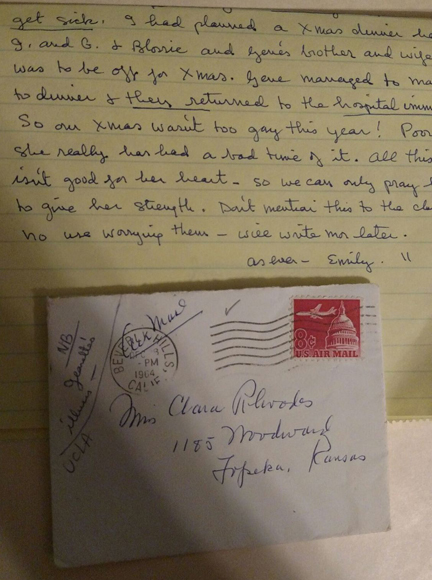 get sick. I had planned a Xmas dinner
J. and G. & Blossie and Gene's brother and wife
was to be off for Xmas. Gene managed to
to dinner & they returned to the hospital
So our Xmas wasn't too gay this year! Poor
she really has had a bad time of it. All this
isn't good for her heart - so we can only pray
to give her strength. Don't mention this to the
no use worrying them - will write more later.
as ever - Emily. "
Air Mail
BEVERLY HILLS
PM
1964
CALIF.
8¢
U.S. AIR MAIL
NB
illness
UCLA
Miss Clara Rhoades
1185 Woodward
Topeka, Kansas